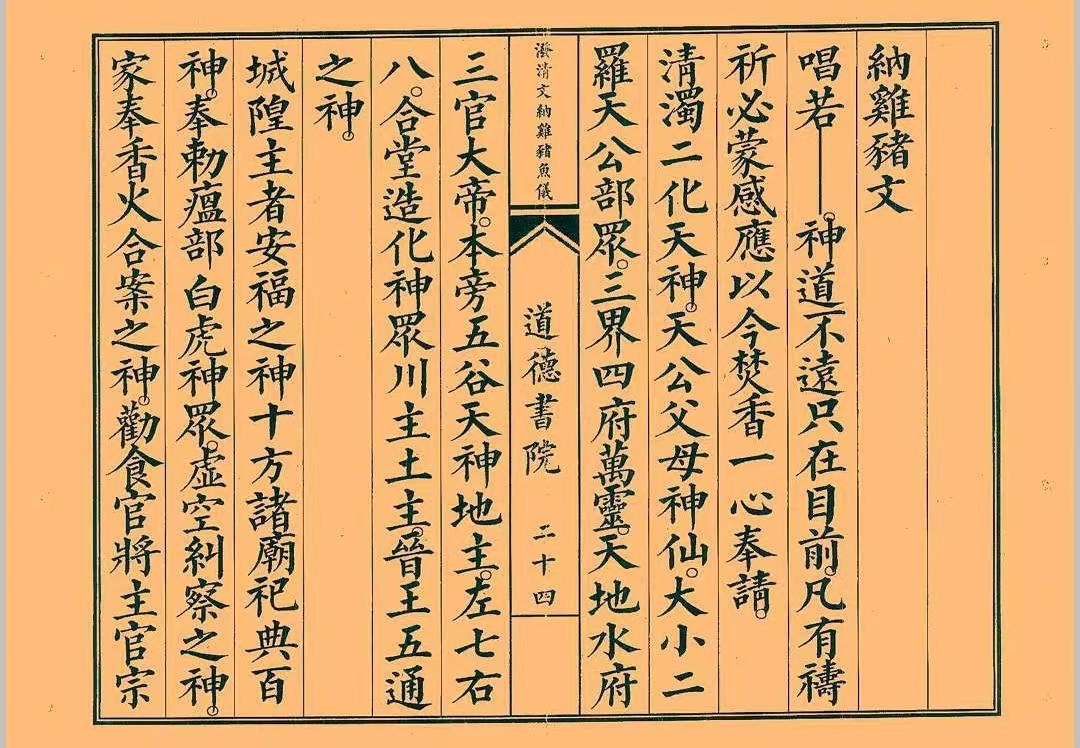 納雞豬文
唱若——。神道不遠只在目前。凡有禱
祈必蒙感應以今焚香一心奉請。
清濁二化天神。天公父母神仙。大小二
羅天公部眾。三界四府萬靈。天地水府
潑清文納雞豬魚儀
道德書院
二十四
三官大帝。本旁五谷天神地主。左七右
八。合堂造化神眾川主土主。晉王五通
之神。
城隍主者安福之神十方諸廟祀典百
神。奉勅瘟部白虎神眾。虛空糾察之神。
家奉香火合案之神。勸食官將主官宗